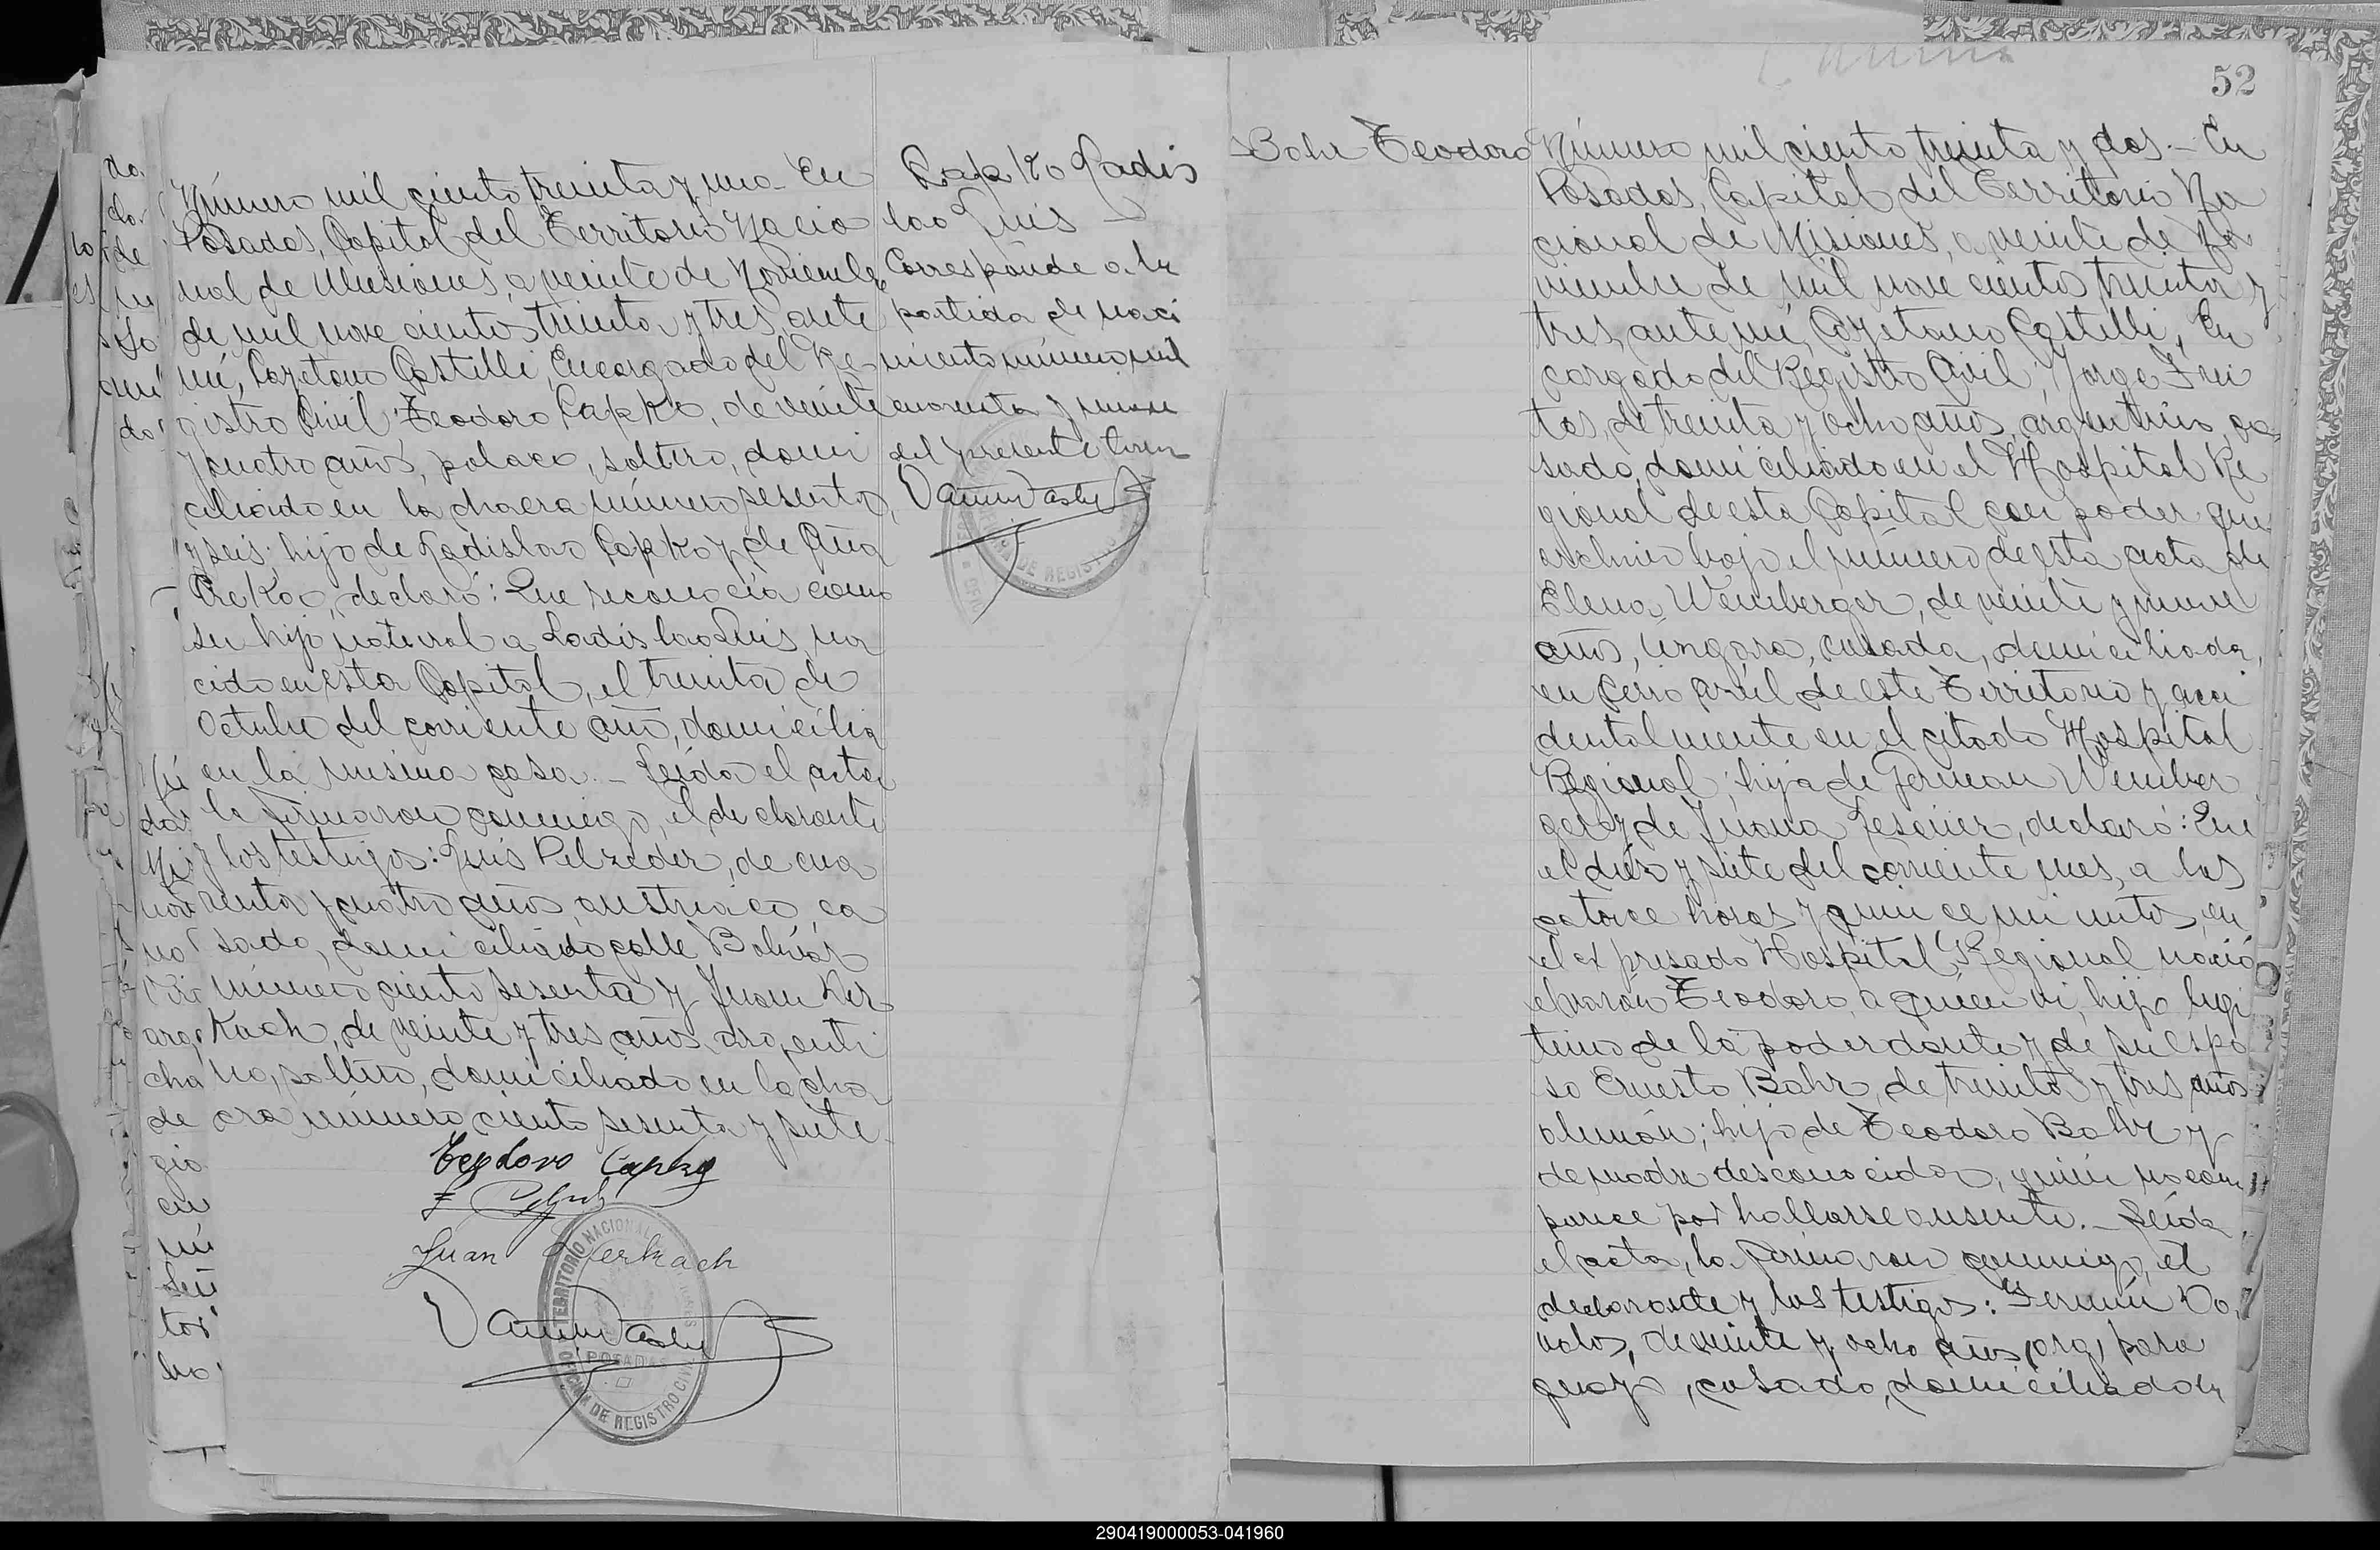 Número mil ciento treinta y uno. En
Posadas, Capital del Territorio Nacio
nal de Misiones, a veinte de Noviembre
de mil nove cientos treinta y tres, ante
mí, Cayetano Castelli, Encargado del Re-
gistro Civil, Teodoro Capko, de veinte
y cuatro años, polaco, soltero, domi
ciliado en la chacra número sesenta
y seis; hijo de Ladislao Capko y de Ana
declaró: Que reconocía como
su hijo natural a Ladislao Luis, na
cido en esta Capital, el treinta de
Octubre del corriente año, domicilia
en la misma casa.- Leída el acta,
la firmaron conmigo, el declarante
y los testigos: Luis Pelzeder, de cua
renta y cuatro años, austriaco, ca
sado, domiciliado calle Bolívar
número ciento sesenta y Juan Ker
kach, de veinte y tres años, argenti
no, soltero, domiciliado en la cha
cra número ciento sesenta y siete.
Teodoro Capko
Juan Kerkach
TERRITORIO NACIONAL DE MISIONES
POSADAS
OFICINA DE REGISTRO CIVIL
Capko Ladis
lao Luis
Corresponde a la
partida de naci
miento número mil
cuarenta y nueve
del presente tomo
DE REGISTRO
52
Bahr Teodoro
Número mil ciento treinta y dos.- En
Posadas, Capital del Territorio Na
cional de Misiones, a veinte de No
viembre de mil nove cientos treinta y
tres, ante mí, Cayetano Castelli, En
cargado del Registro Civil, Jorge Frei
tas, de treinta y ocho años, argentino, ca
sado, domiciliado en el Hospital Re
gional de esta Capital con poder que
archivo bajo el número de esta acta de
Elena Weinberger, de veinte y nueve
años, úngara, casada, domiciliada,
en Cerro Azul de este Territorio y acci
dentalmente en el citado Hospital
Regional; hija de German Weinber
ger y de Juana declaró: Que
el diez y siete del corriente mes, a las
catorce horas y quince minutos, en
el expresado Hospital Regional nació
el varón Teodoro, a quien vi, hijo legi
timo de la poderdante y de su espo
so Ernesto Bahr, de treinta y tres años
alemán; hijo de Teodoro Bahr y
de madre desconocida, quien no com
parece por hallarse ausente.- Leída
el acta, la firmaron conmigo, el
declarante y los testigos: Fermín Do
valos, de veinte y ocho años, (arg) para
guayo, casado, domiciliado en
290419000053-041960